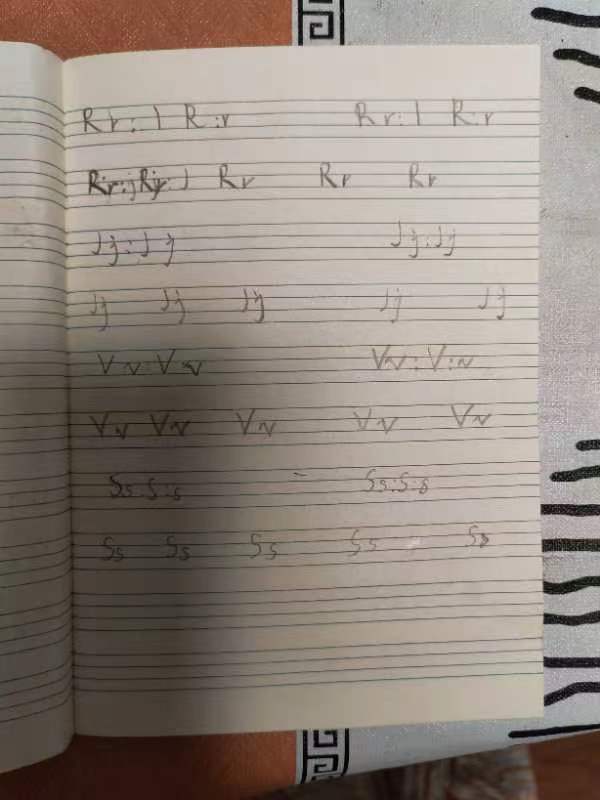 Rr: l R:r Rr: l R:r
Rr Rr Rr Rr
Jj:Jj Jj:Jj
Jj Jj Jj Jj Jj
Vv:Vv Vv:V:v
Vv Vv Vv Vv Vv
Ss:S:s Ss:S:s
Ss Ss Ss Ss Ss